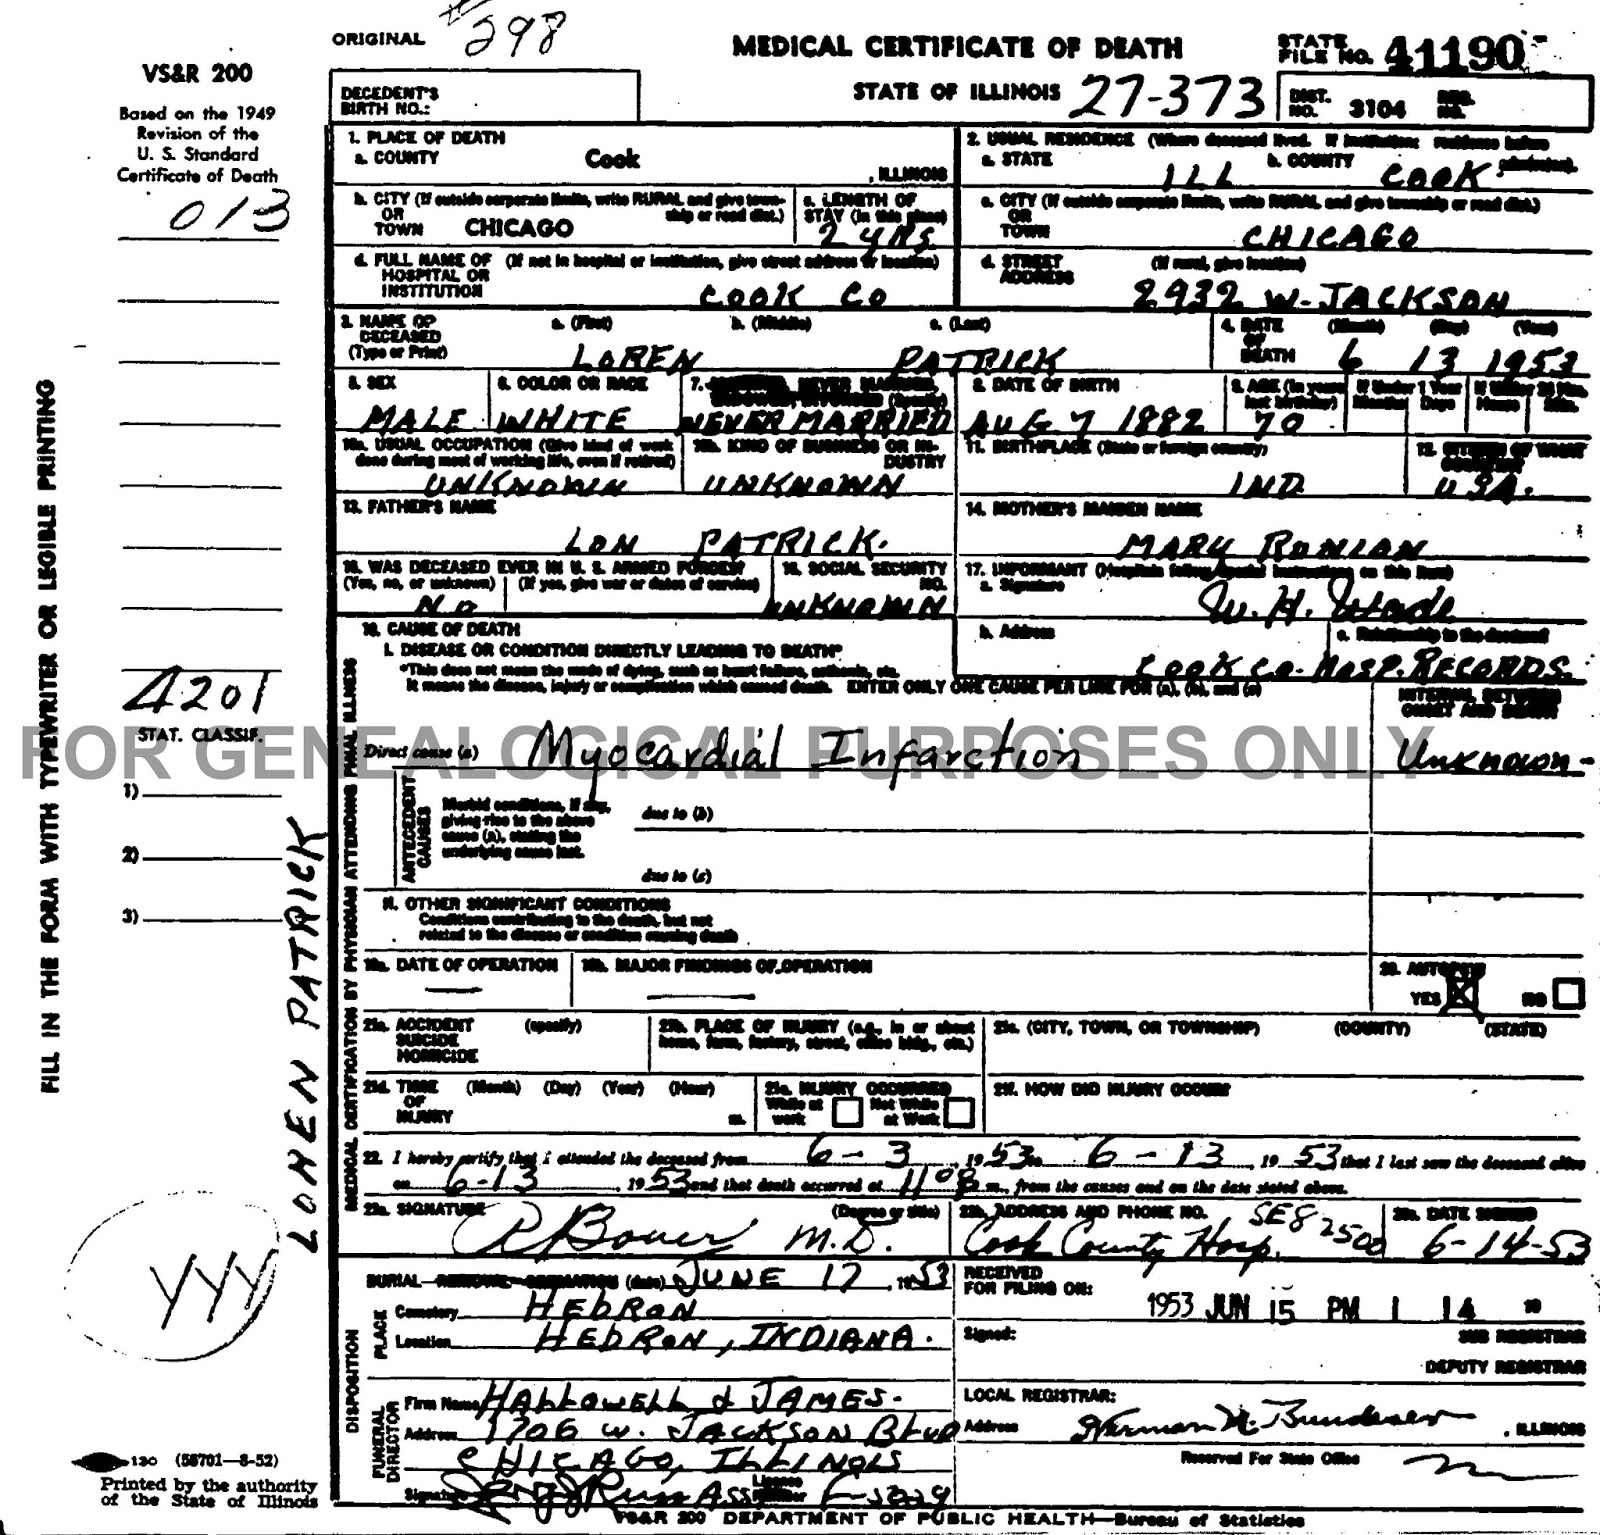 #298
ORIGINAL
MEDICAL CERTIFICATE OF DEATH
STATE FILE NO. 41190
VS&R 200
STATE OF ILLINOIS 27-373
DECEDENT'S BIRTH NO.:
DIST. NO. 3104 REG. NO.
Based on the 1949
Revision of the
U. S. Standard
Certificate of Death
013
1. PLACE OF DEATH
a. COUNTY Cook , ILLINOIS
2. USUAL RESIDENCE (Where deceased lived. If institution: residence before admission).
a. STATE ILL b. COUNTY COOK
b. CITY (If outside corporate limits, write RURAL and give township or road dist.)
OR
TOWN CHICAGO
c. LENGTH OF STAY (in this place)
2 yRS
c. CITY (If outside corporate limits, write RURAL and give township or road dist.)
OR
TOWN CHICAGO
d. FULL NAME OF (If not in hospital or institution, give street address or location)
HOSPITAL OR
INSTITUTION COOK CO
d. STREET ADDRESS (If rural, give location)
2932 W. JACKSON
3. NAME OF DECEASED (Type or Print) a. (First) b. (Middle) c. (Last)
LOREN PATRICK
4. DATE OF DEATH (Month) (Day) (Year)
6 13 1953
5. SEX
MALE
6. COLOR OR RACE
WHITE
7. NEVER MARRIED,
NEVER MARRIED
8. DATE OF BIRTH
AUG 7 1882
9. AGE (In years last birthday) If Under 1 Year Months Days If Under 24 Hrs. Hours Min.
70
10a. USUAL OCCUPATION (Give kind of work done during most of working life, even if retired)
UNKNOWN
10b. KIND OF BUSINESS OR INDUSTRY
UNKNOWN
11. BIRTHPLACE (State or foreign country)
IND
12. CITIZEN OF WHAT COUNTRY
USA.
13. FATHER'S NAME
LON PATRICK.
14. MOTHER'S MAIDEN NAME
MARY RONIAN
15. WAS DECEASED EVER IN U. S. ARMED FORCES?
(Yes, no, or unknown) (If yes, give war or dates of service)
No
16. SOCIAL SECURITY NO.
UNKNOWN
17. INFORMANT (Hospitals follow special instructions on this item)
a. Signature W. H. Wade
b. Address c. Relationship to the deceased
COOK CO. HOSP. RECORDS.
18. CAUSE OF DEATH
I. DISEASE OR CONDITION DIRECTLY LEADING TO DEATH*
*This does not mean the mode of dying, such as heart failure, asthenia, etc.
It means the disease, injury or complication which caused death. ENTER ONLY ONE CAUSE PER LINE FOR (a), (b), and (c)
INTERVAL BETWEEN ONSET AND DEATH
4201
STAT. CLASSIF.
FOR GENEALOGICAL PURPOSES ONLY
Direct cause (a) Myocardial Infarction Unknown-
1)
2)
3)
ANTECEDENT CAUSES
Morbid conditions, if any,
giving rise to the above
cause (a), stating the
underlying cause last.
due to (b)
due to (c)
II. OTHER SIGNIFICANT CONDITIONS
Conditions contributing to the death, but not
related to the disease or condition causing death
19a. DATE OF OPERATION
19b. MAJOR FINDINGS OF OPERATION
20. AUTOPSY
YES X NO
21a. ACCIDENT (specify)
SUICIDE
HOMICIDE
21b. PLACE OF INJURY (e.g., in or about home, farm, factory, street, office bldg., etc.)
21c. (CITY, TOWN, OR TOWNSHIP) (COUNTY) (STATE)
21d. TIME (Month) (Day) (Year) (Hour)
OF
INJURY m.
21e. INJURY OCCURRED
While at work Not While at Work
21f. HOW DID INJURY OCCUR?
22. I hereby certify that I attended the deceased from 6-3, 1953 to 6-13, 1953 that I last saw the deceased alive
on 6-13, 1953 and that death occurred at m., from the causes and on the date stated above.
23a. SIGNATURE (Degree or title)
M.D.
23b. ADDRESS AND PHONE NO. SE8 2500
Cook County Hosp.
23c. DATE SIGNED
6-14-53
BURIAL REMOVAL CREMATION (date) JUNE 17, 1953
PLACE
Cemetery HEBRON
Location HEBRON, INDIANA.
DISPOSITION
FUNERAL DIRECTOR
Firm Name HALLOWELL & JAMES.
Address 1706 W. JACKSON BLVD
CHICAGO, ILLINOIS
Signature License Number
RECEIVED FOR FILING ON:
1953 JUN 15 PM 1 14 19
Signed:
SUB REGISTRAR
DEPUTY REGISTRAR
LOCAL REGISTRAR:
Address Herman N. Bundesen , ILLINOIS
Reserved For State Office
FILL IN THE FORM WITH TYPEWRITER OR LEGIBLE PRINTING
LOREN PATRICK
MEDICAL CERTIFICATION BY PHYSICIAN ATTENDING FINAL ILLNESS
YYY
130 (58701-8-52)
Printed by the authority
of the State of Illinois
VS&R 200 DEPARTMENT OF PUBLIC HEALTH—Bureau of Statistics